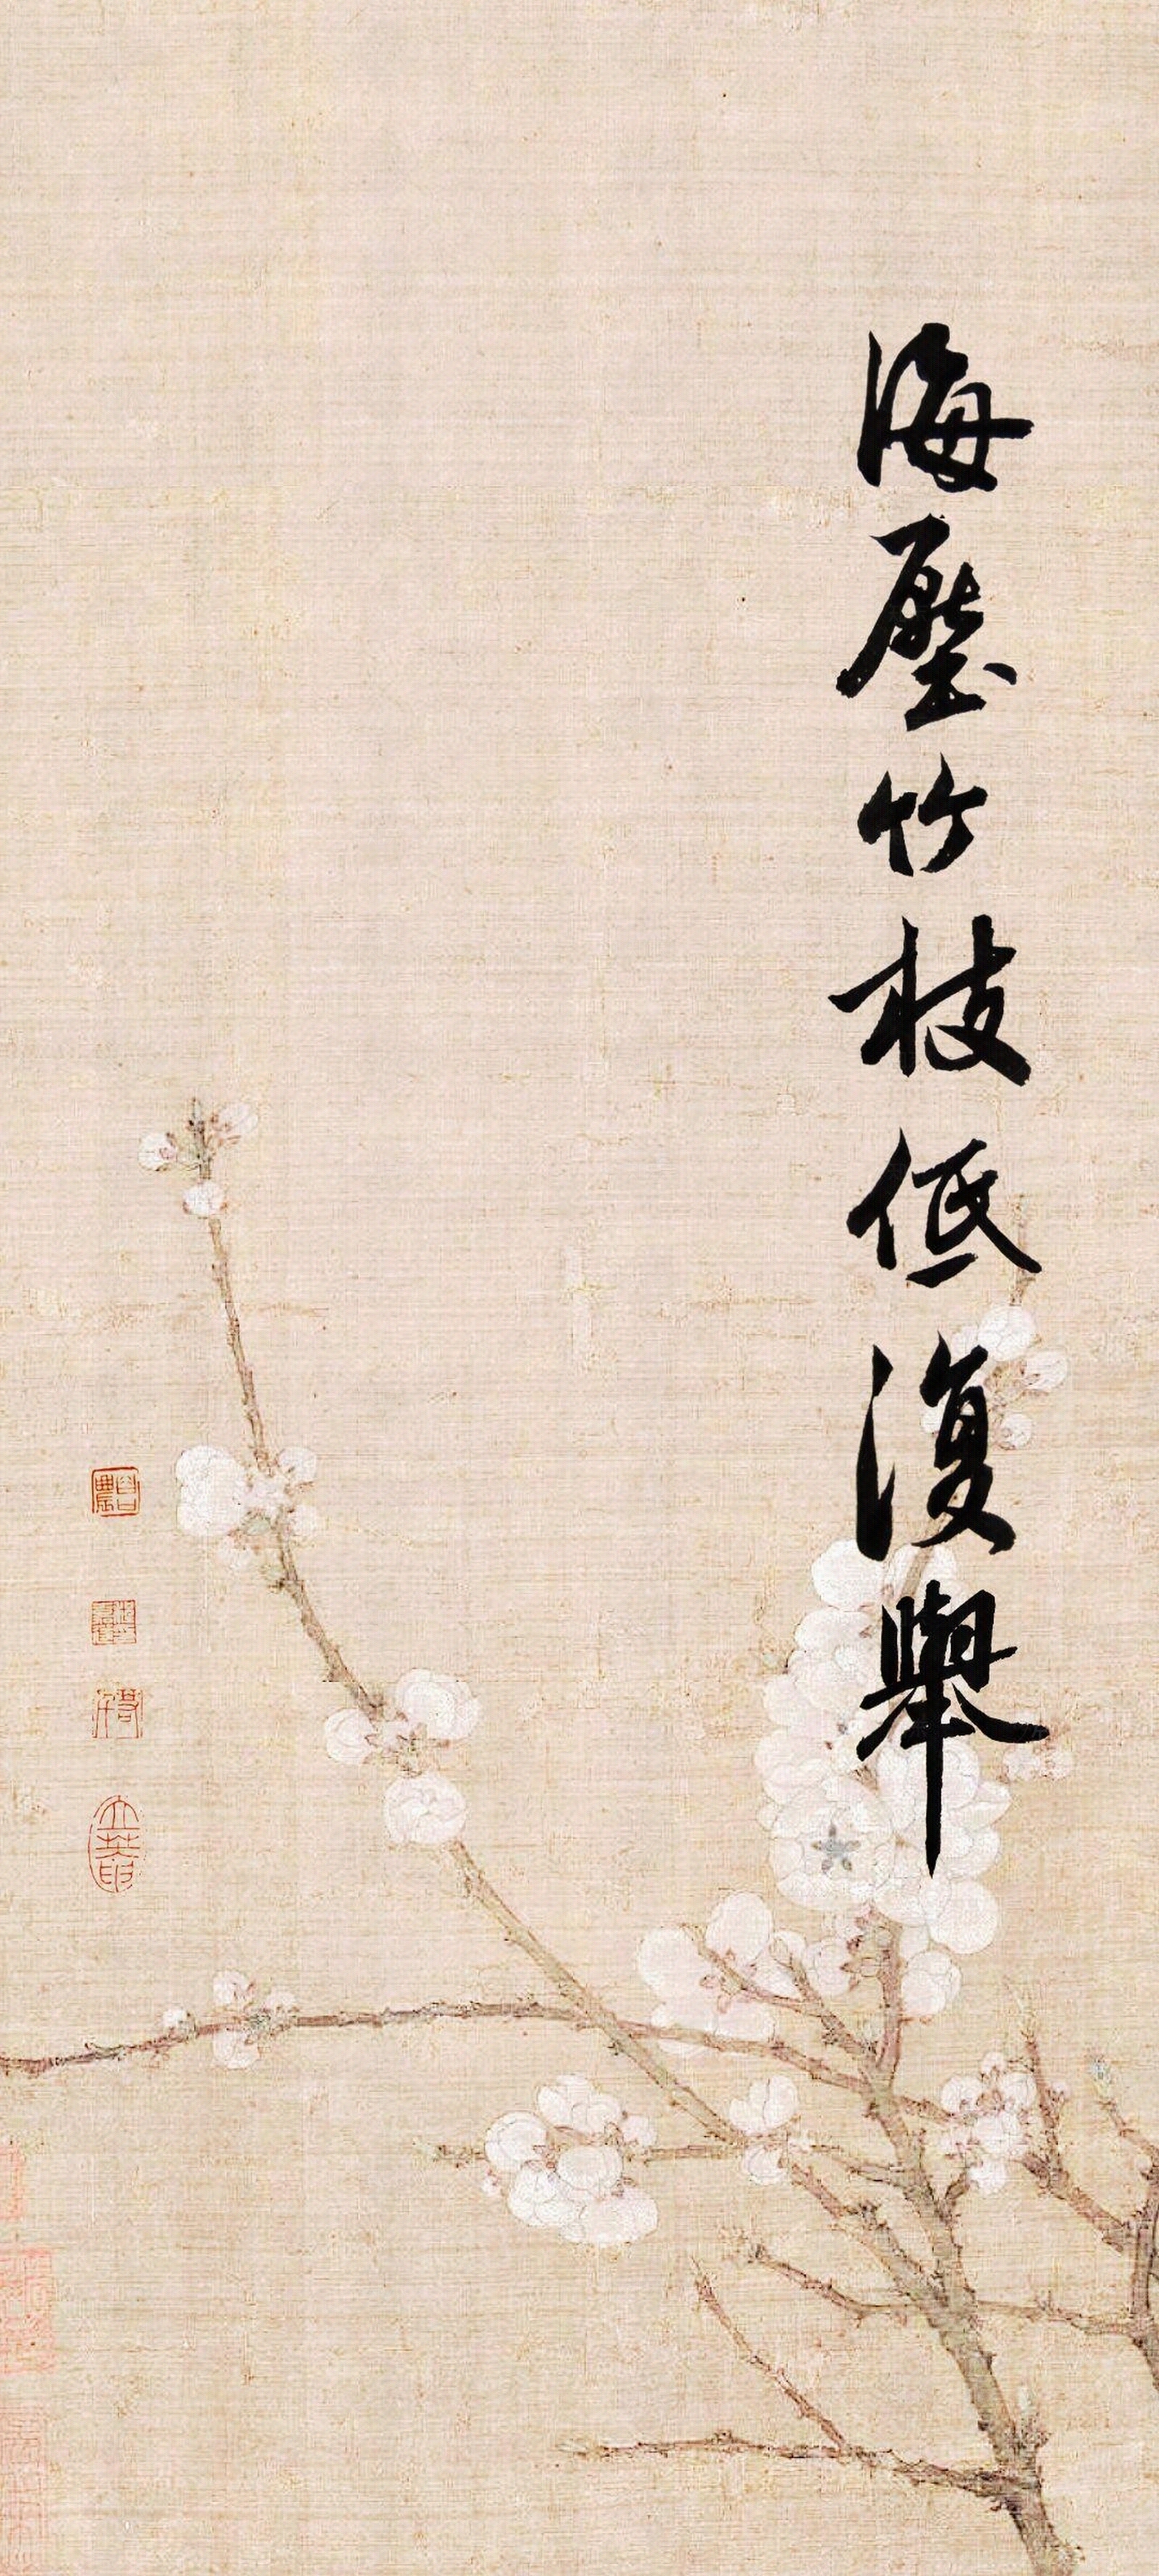 海壓竹枝低復舉